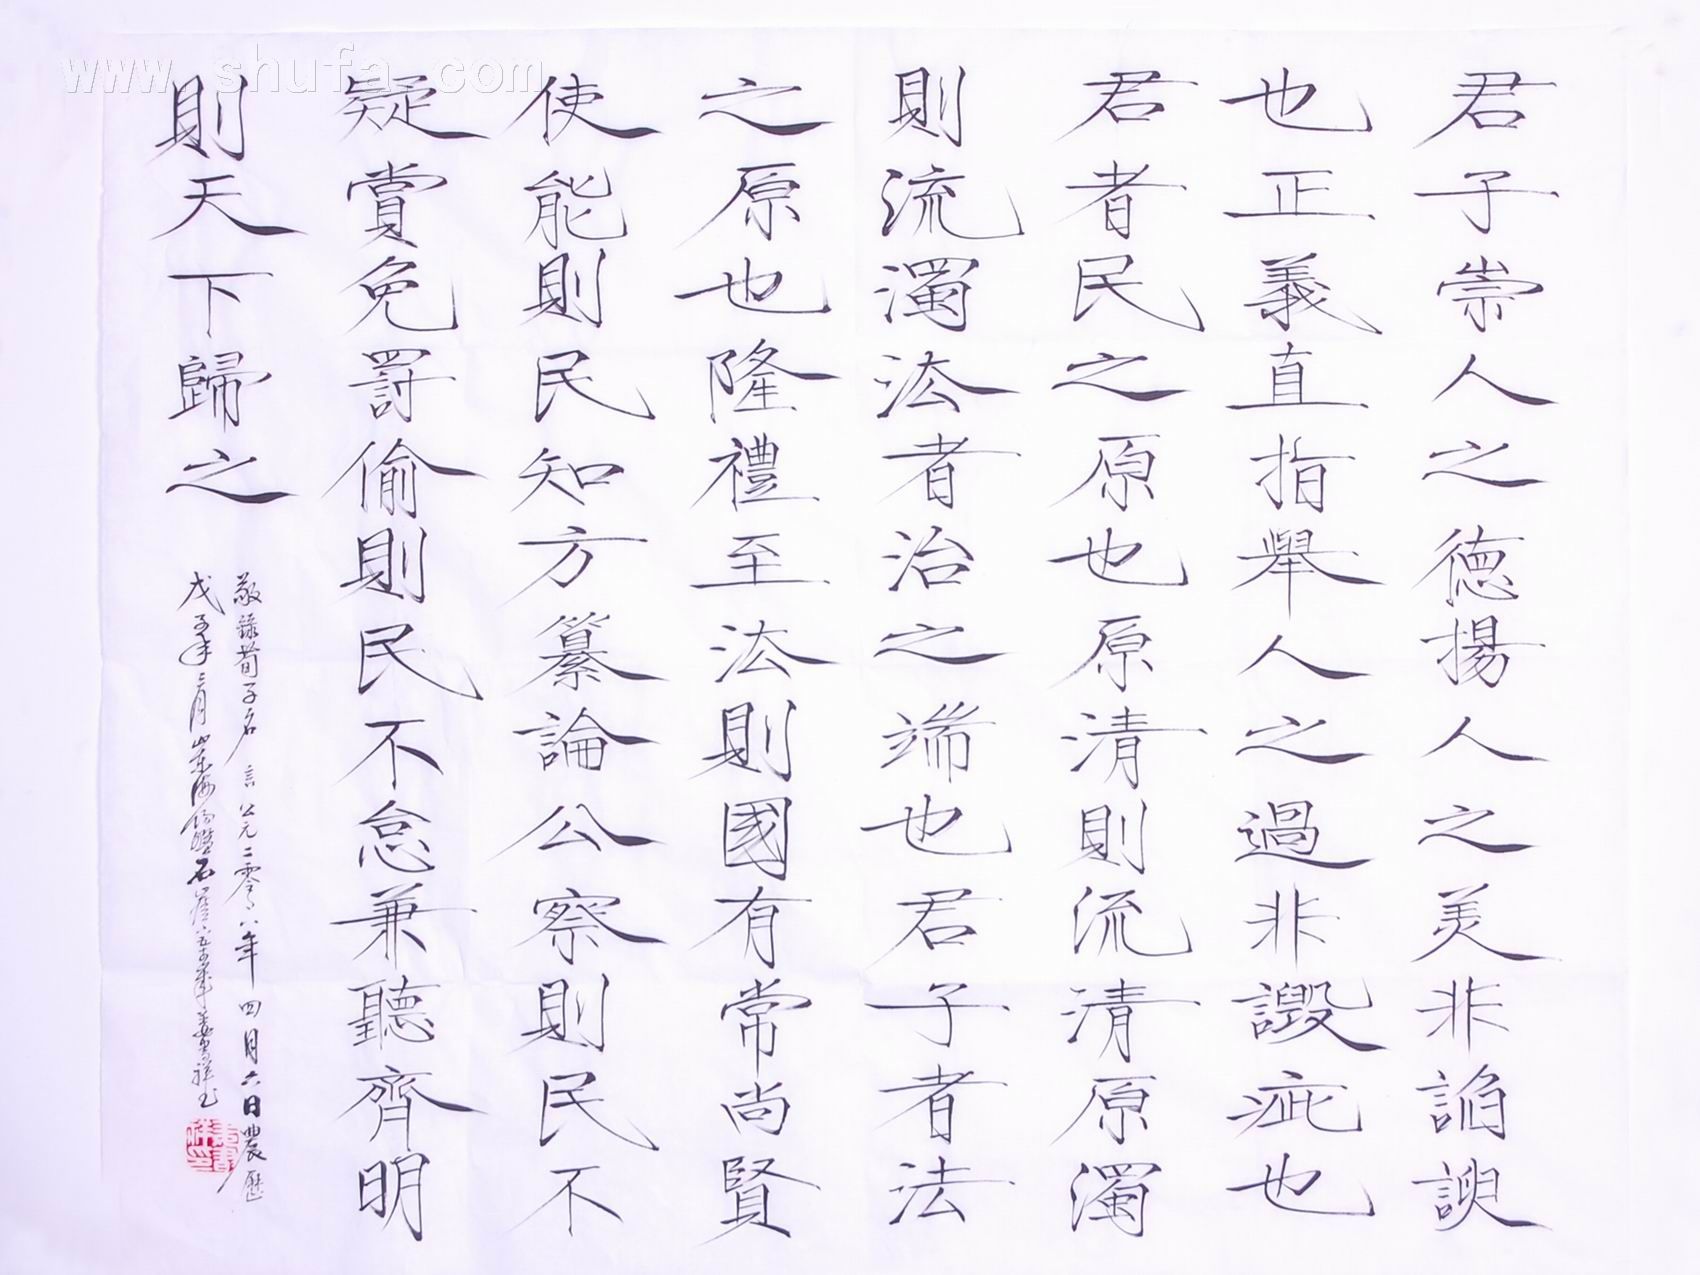 www.shufa.com
君子崇人之德揚人之美非諂諛
也正義直指舉人之過非譭疵也
君者民之原也原清則流清原濁
則流濁法者治之端也君子者法
之原也隆禮至法則國有常尚賢
使能則民知方纂論公察則民不
疑賞免罰偷則民不怠兼聽齊明
則天下歸之
敬錄荀子名言公元二零八年四月六日農歷
戊子年三月山東海陽石